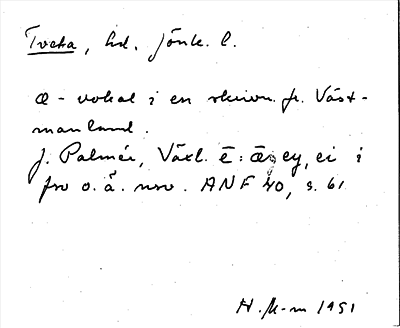 Tveta, hd. Jönk. l.
æ-vokal i en skrivn. fr. Väst-
manland.
J. Palmér, Växl. ē: ǣ, ey, ei i
fsv o. å. nsv. ANF 40, s. 61
1951